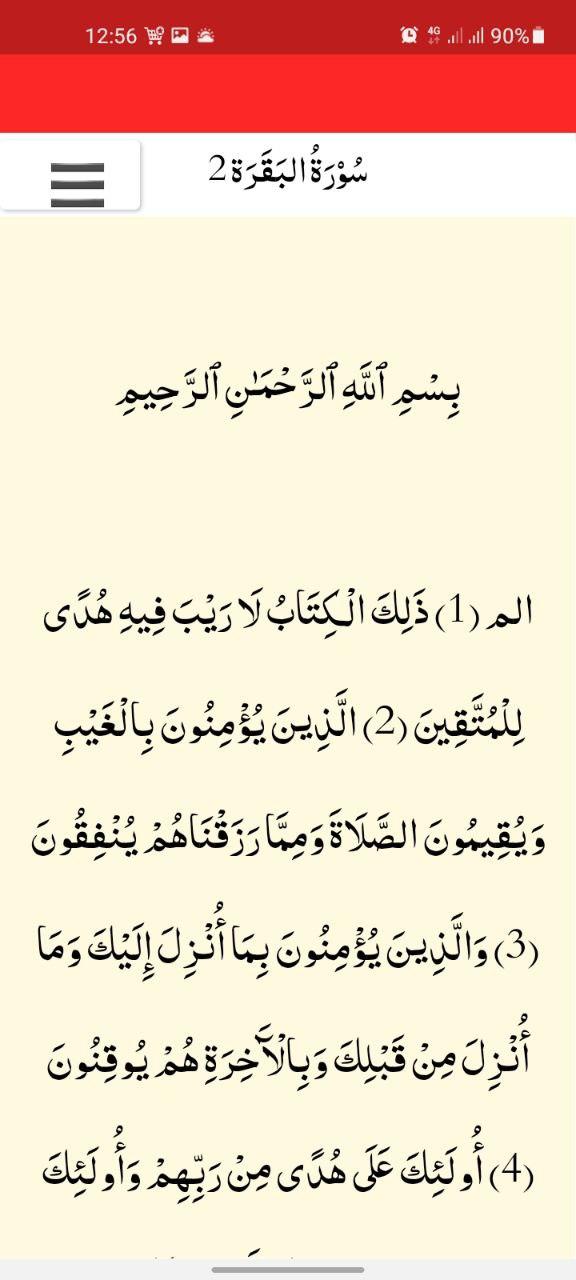 12:56
4G
90%
سُوْرَةُ البَقَرَة 2
بِسْمِ ٱللَّهِ ٱلرَّحْمَٰنِ ٱلرَّحِيمِ
الم (1) ذَلِكَ الْكِتَابُ لَا رَيْبَ فِيهِ هُدًى
لِلْمُتَّقِينَ (2) الَّذِينَ يُؤْمِنُونَ بِالْغَيْبِ
وَيُقِيمُونَ الصَّلَاةَ وَمِمَّا رَزَقْنَاهُمْ يُنْفِقُونَ
(3) وَالَّذِينَ يُؤْمِنُونَ بِمَا أُنْزِلَ إِلَيْكَ وَمَا
أُنْزِلَ مِنْ قَبْلِكَ وَبِالْآَخِرَةِ هُمْ يُوقِنُونَ
(4) أُولَئِكَ عَلَى هُدًى مِنْ رَبِّهِمْ وَأُولَئِكَ